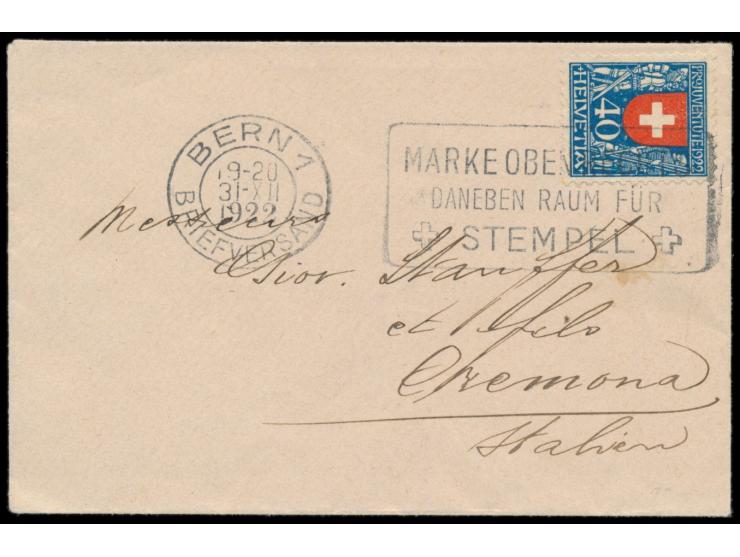 BERN 1
19-20
31·XII
1922
BRIEFVERSAND
MARKE OBEN
DANEBEN RAUM FÜR
STEMPEL
PRO JUVENTUTE 1922
40
HELVETIA
Messieurs
Giov. Stauffer
et fils
Cremona
Italien